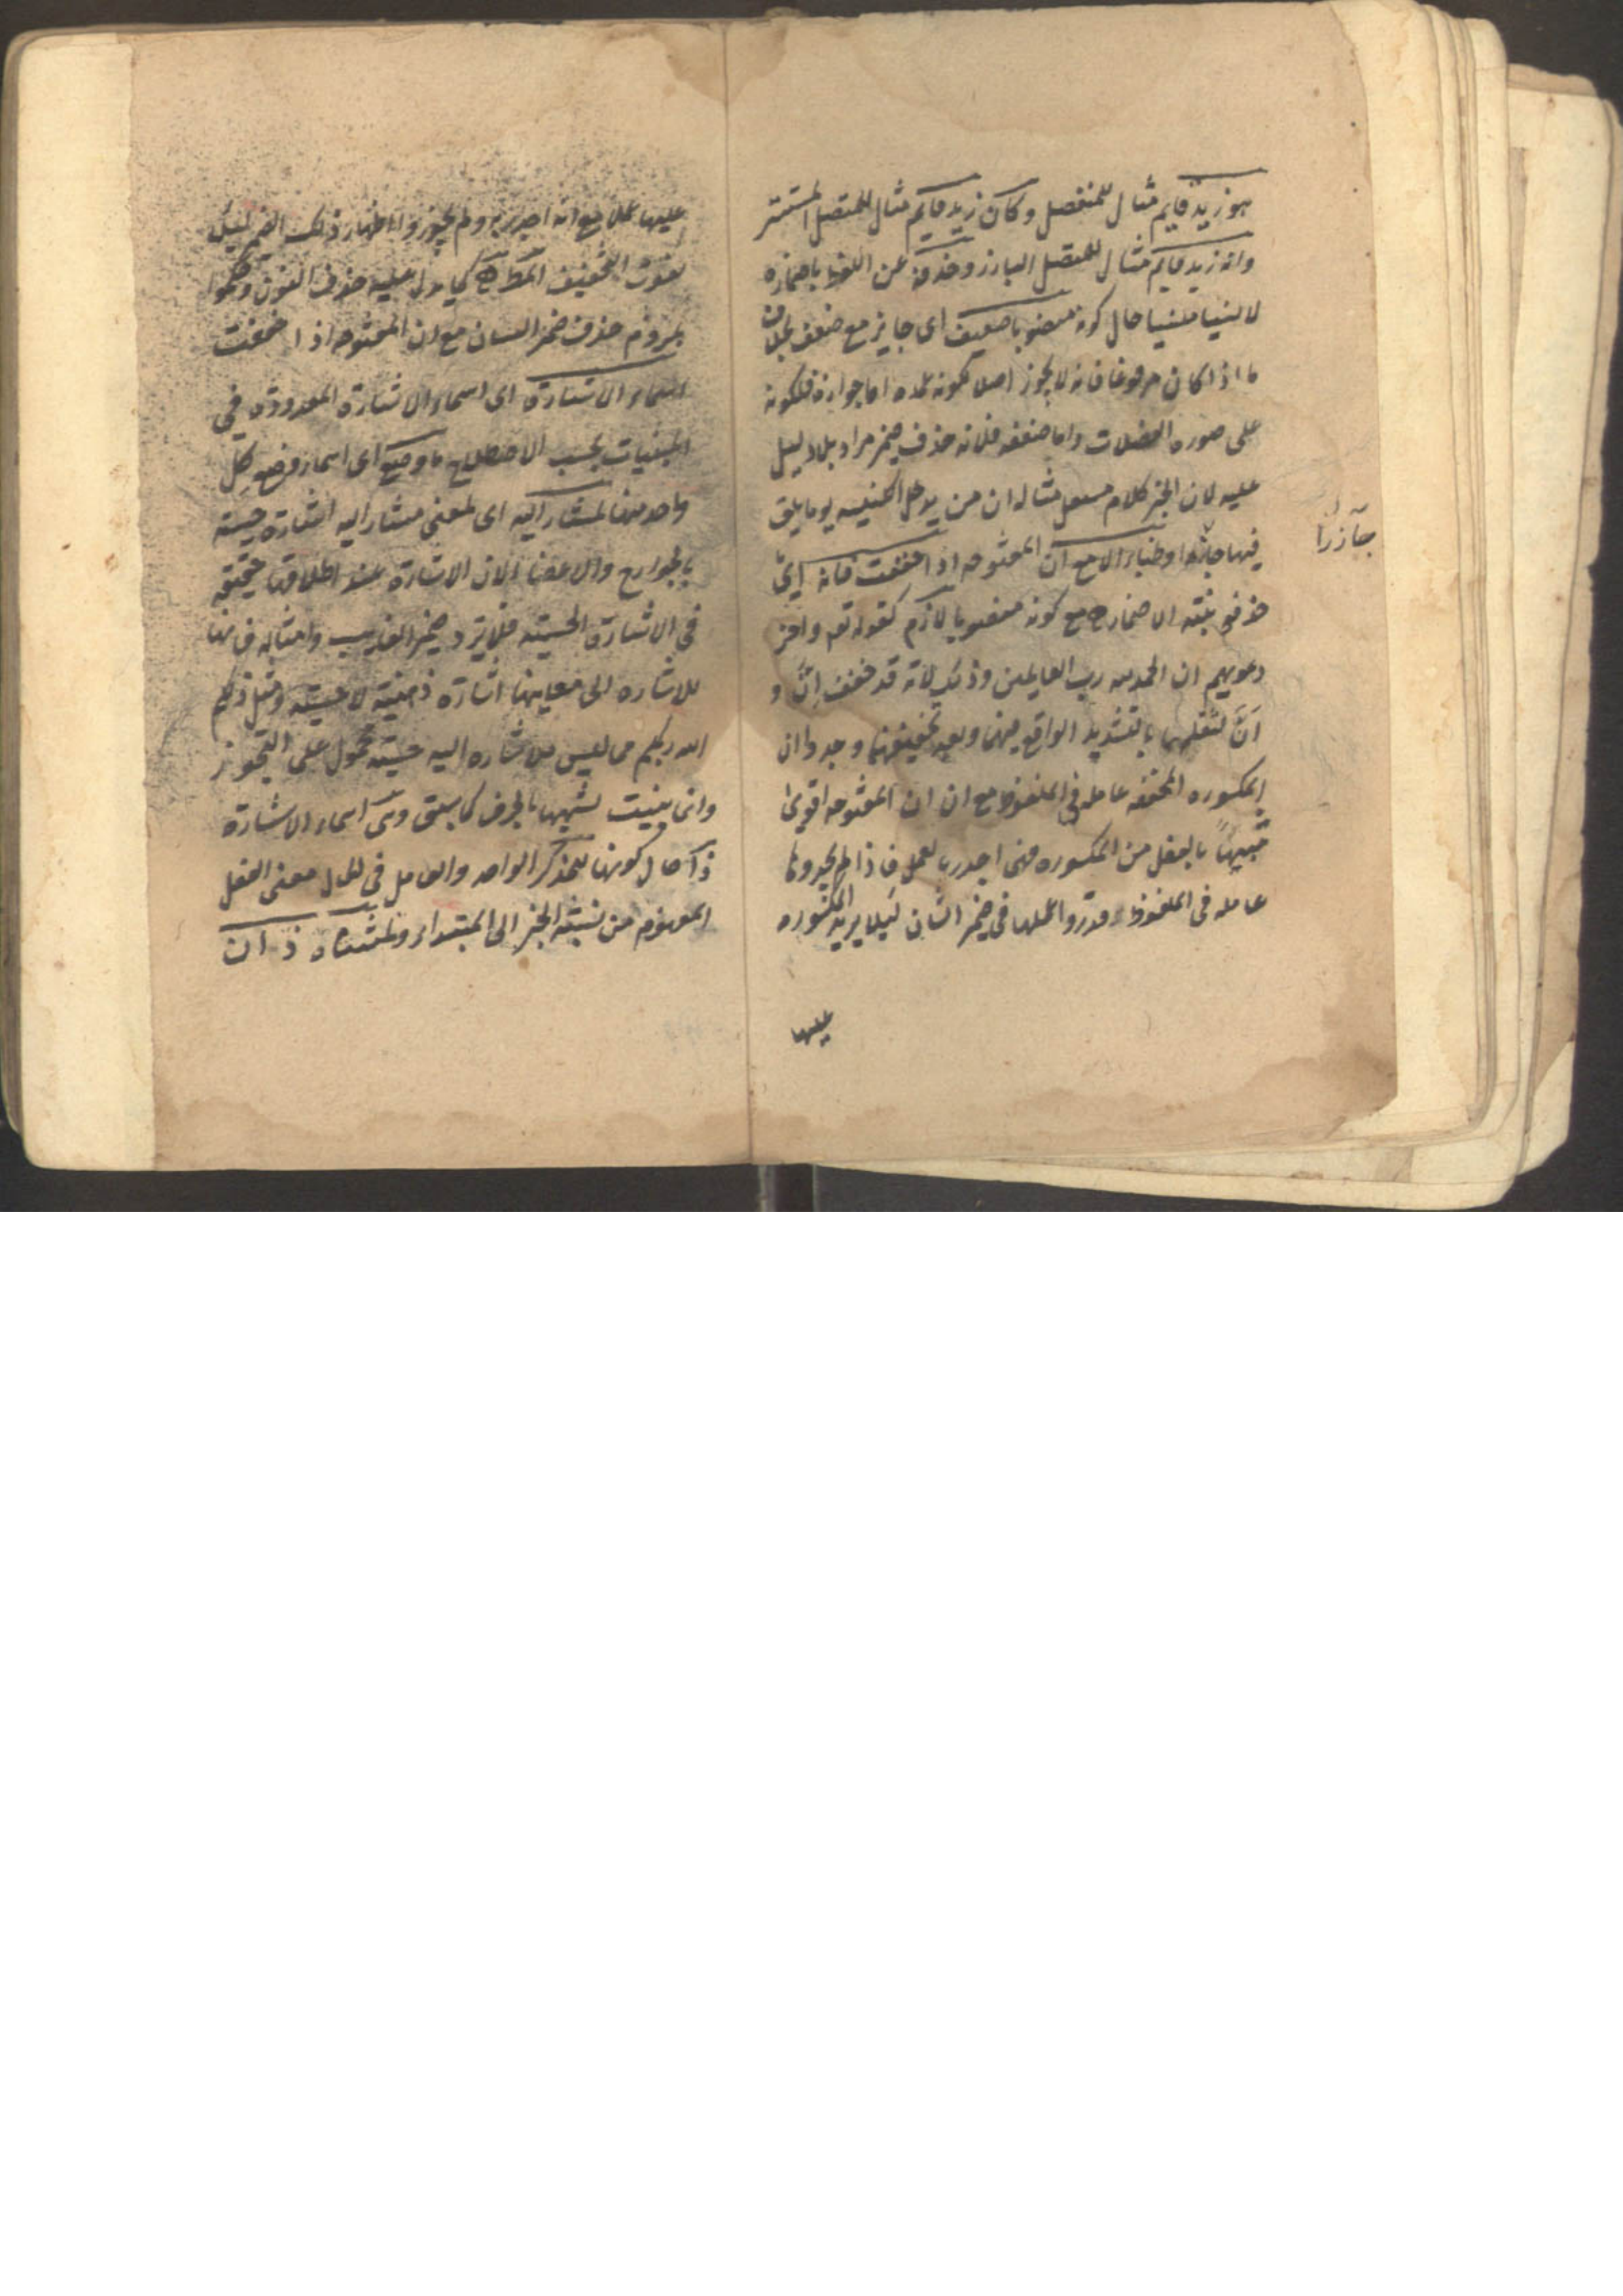 هو زيد قايم مثال للمنفصل وكان زيد قايم مثال للمتصل المستتر
وانه زيد قايم مثال للمتصل البارز وحذفه عن اللفظ باضماره
لا نسيا منسيا حال كونه منصوبا ضعيف اى جايز مع ضعف بخلاف
ما اذا كان مرفوعا فانه لا يجوز اصلا لكونه عمده اما جوازه فلكونه
على صوره الفضلات واما ضعفه فلانه حذف ضمير مراد بلا دليل
عليه لان الخبر كلام مستقل مثاله ان من يدخل الكنيسه يوما يلق
فيها جاذرا وظباء الا مع ان المفتوحه اذا خففت فانه اى
حذفه بنية الاضمار مع كونه منصوبا لازم كقوله تعم واخر
دعويهم ان الحمد لله رب العالمين وذلك لانه قد خفف اِنَّ و
اَنَّ لثقلهما بالتشديد الواقع فيهما وبعد تخفيفهما وجدوا ان
المكسوره المخففه عامله فى الملفوظ مع ان ان المفتوحه اقوى
شبيهاً بالفعل من المكسوره فهى اجدر بالعمل فاذا لم يجدوها
عامله فى الملفوظ قدروا عملها فى ضمير الشان ليلا يزيد المكسوره
عليها
جآذرا
عليها عملا مع انه اجدر به ولم يجوزوا اظهار ذلك الضمير ليلا
يفوت التخفيف المط كما يدل عليه حذف النون وحكموا
بلزوم حذف ضمير الشان مع ان المفتوحه اذا خففت
اسماء الاشارة اى اسماء الاشارة المعدودة فى
المبنيات بحسب الاصطلاح ما وضع اى اسماء وضع كل
واحد منها لمشار اليه اى لمعنى مشار اليه اشارة حسية
بالجوارح والاعضا لان الاشارة عند اطلاقها حقيقه
فى الاشارة الحسية فلا يرد ضمير الغايب وامثاله فانها
للاشاره الى معانيها اشارة ذهنية لا حسية ومثل ذلكم
الله ربكم مما ليس للاشاره اليه حسية محمول على التجوز
وانما بنيت لشبهها بالحرف كما سبق وهى اسماء الاشارة
ذا حال كونها للمذكر الواحد والعامل فى الحال معنى الفعل
المفهوم من نسبة الخبر الى المبتداء ولمثناه ذ ان